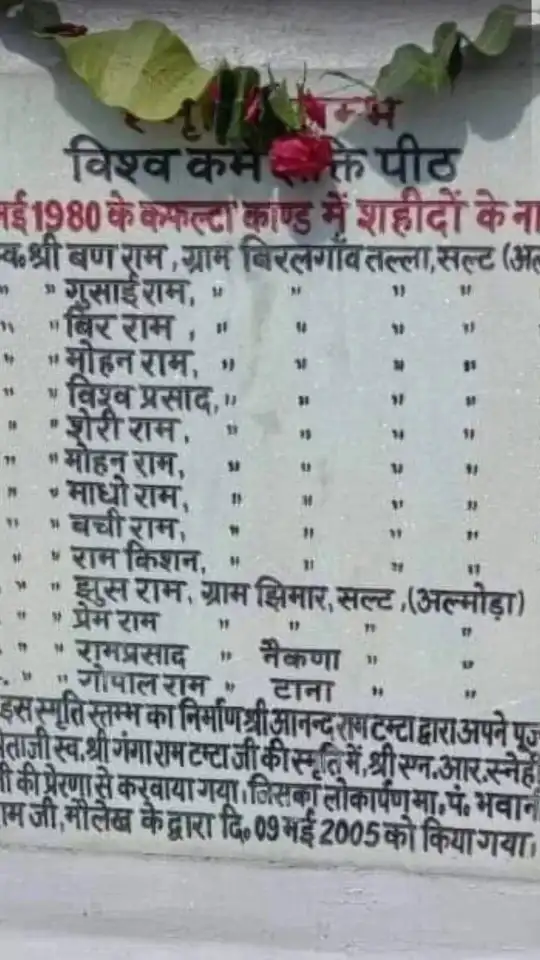 स्मृति स्तम्भ
विश्व कर्म शक्ति पीठ
मई 1980 के कफल्टा काण्ड में शहीदों के
स्व० श्री बण राम, ग्राम बिरलगाँव तल्ला, सल्ट
" " गुसाई राम, " " " "
" " बिर राम , " " " "
" " मोहन राम, " " " "
" " विश्व प्रसाद, " " " "
" " शेरी राम, " " " "
" " मोहन राम, " " " "
" " माधो राम, " " " "
" " बची राम, " " " "
" " राम किशन, " " " "
" " झुस राम, ग्राम झिमार, सल्ट ,(अल्मोड़ा)
" " प्रेम राम " " " "
" " रामप्रसाद " नैकणा " "
" " गोपाल राम " टाना " "
इस स्मृति स्तम्भ का निर्माण श्री आनन्द राम टम्टा द्वारा अपने
स्व. श्री गंगा राम टम्टा जी की स्मृति में, श्री एन.आर. स्नेही
जी की प्रेरणा से करवाया गया। जिसका लोकार्पण मा. पं. भवानी
राम जी, मौलेख के द्वारा दि० 09 मई 2005 को किया गया।